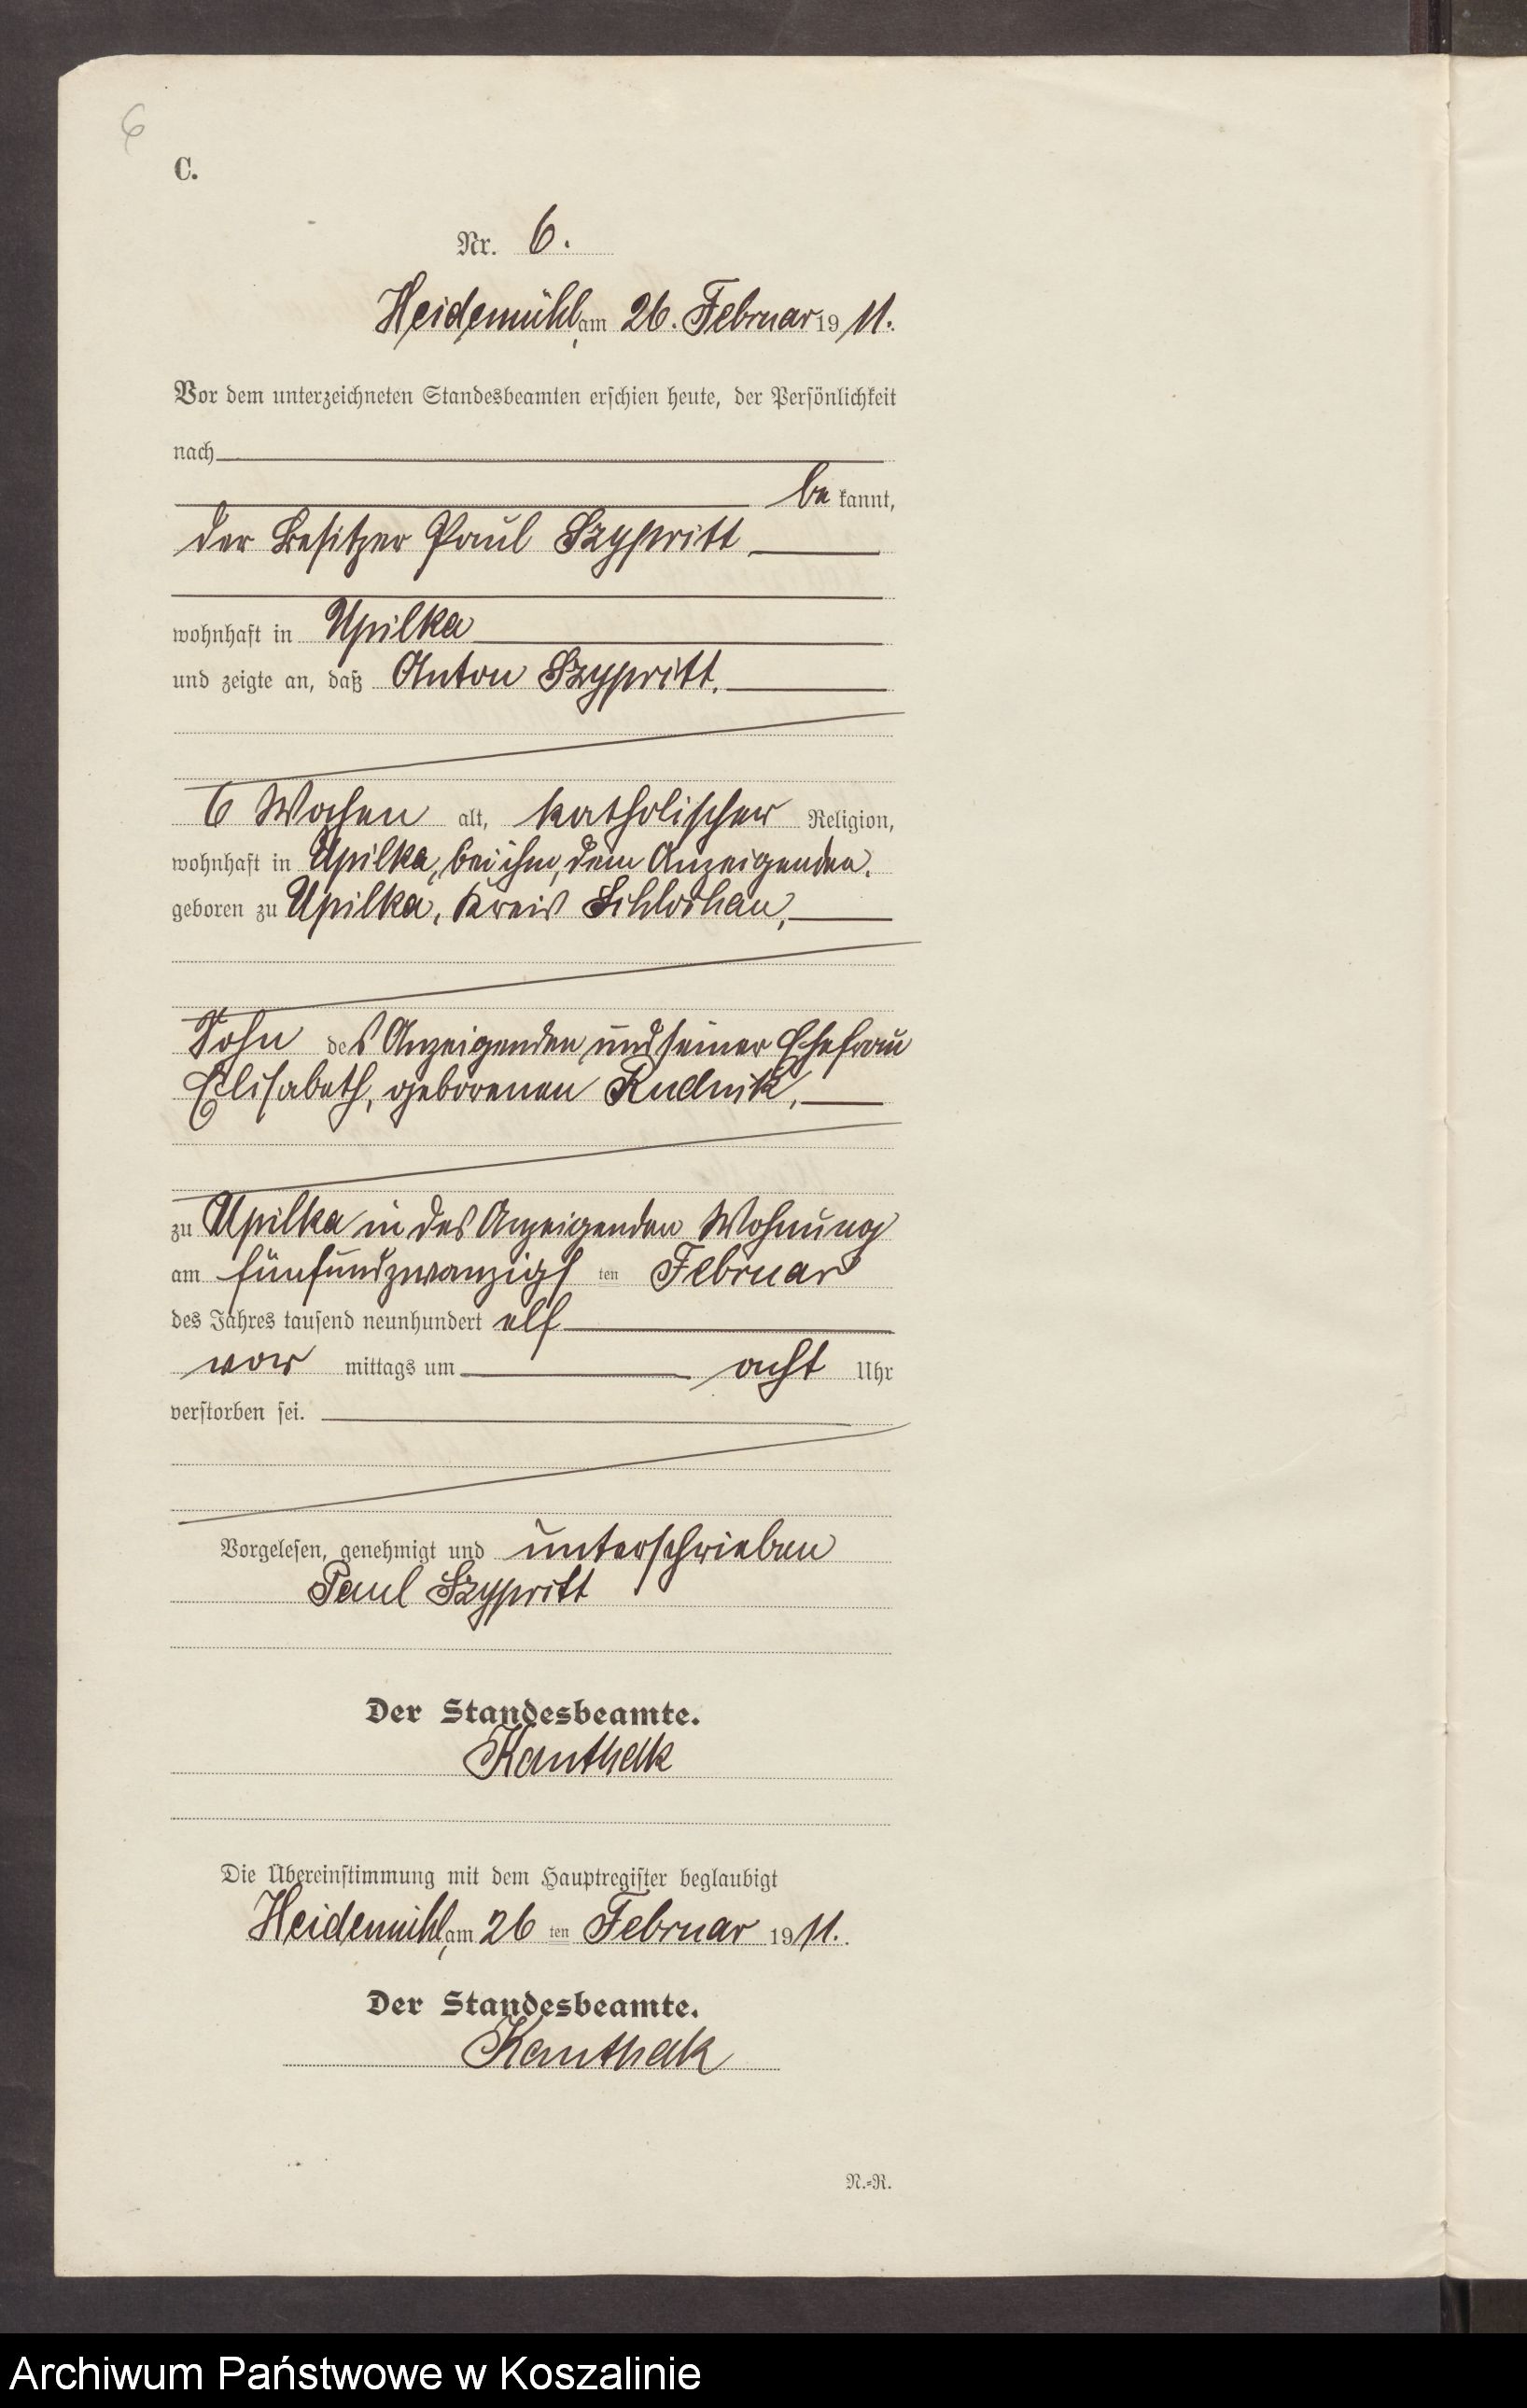 6
C.
Nr. 6.
Heidemühl, am 26. Februar 1911.
Vor dem unterzeichneten Standesbeamten erschien heute, der Persönlichkeit
nach
be kannt,
der Besitzer Paul Szypritt
wohnhaft in Upilka
und zeigte an, daß Anton Szypritt,
6 Wochen alt, katholischer Religion,
wohnhaft in Upilka, bei ihm, dem Anzeigenden,
geboren zu Upilka, Kreis Schlochau,
Sohn des Anzeigenden und seiner Ehefrau
Elisabeth, geborenen Rudnik,
zu Upilka in des Anzeigenden Wohnung
am fünfundzwanzigsten Februar
des Jahres tausend neunhundert elf
vor mittags um acht Uhr
verstorben sei.
Vorgelesen, genehmigt und unterschrieben
Paul Szypritt
Der Standesbeamte.
Kanthak
Die Übereinstimmung mit dem Hauptregister beglaubigt
Heidemühl, am 26 ten Februar 1911.
Der Standesbeamte.
Kanthak
N.=R.
Archiwum Państwowe w Koszalinie